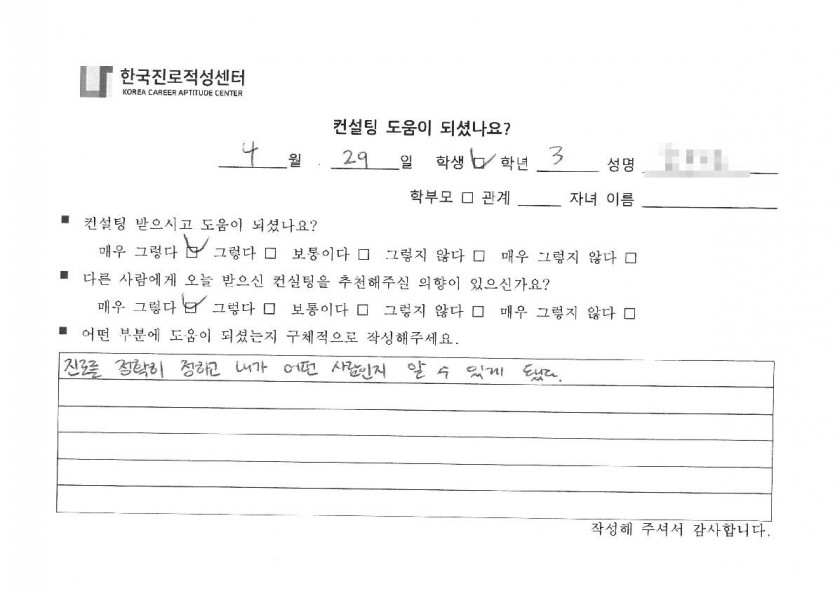 한국진로적성센터
KOREA CAREER APTITUDE CENTER
컨설팅 도움이 되셨나요?
4 월 . 29 일 학생 ☑ 학년 3 성명
학부모 □ 관계 ____ 자녀 이름
■ 컨설팅 받으시고 도움이 되셨나요?
매우 그렇다 ☑ 그렇다 □ 보통이다 □ 그렇지 않다 □ 매우 그렇지 않다 □
■ 다른 사람에게 오늘 받으신 컨설팅을 추천해주실 의향이 있으신가요?
매우 그렇다 ☑ 그렇다 □ 보통이다 □ 그렇지 않다 □ 매우 그렇지 않다 □
■ 어떤 부분에 도움이 되셨는지 구체적으로 작성해주세요.
진로를 정확히 정하고 내가 어떤 사람인지 알 수 있게 됐다.
작성해 주셔서 감사합니다.